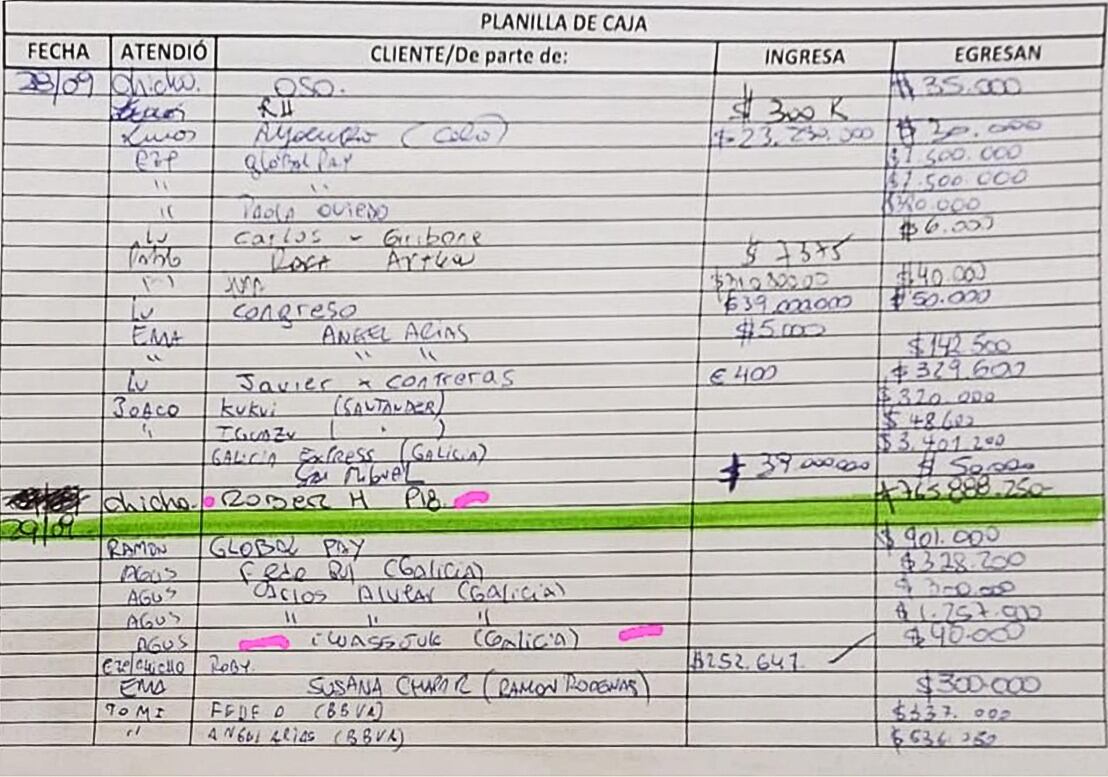 PLANILLA DE CAJA
FECHA ATENDIÓ CLIENTE/De parte de: INGRESA EGRESAN
28/09 Chicho. OSO. $ 35.000
RH $ 300 K
(Colo) $ 23.230.000 $ 20.000
eze global PAY $1.500.000
" " $1.500.000
" Paola Oviedo
Lu Carlos - Guibone $6.000
Pablo $ 7375
$40.000
Lu congreso $39.000.000 $50.000
EMA ANGEL ARIAS $5.000
" " " $142.500
Lu Javier x contreras € 400 $329.600
JOACO KUKUI (SANTANDER) $320.000
" IGUAZU ( " ) $ 48.600
GALICIA EXPRESS (GALICIA) $3.401.200
San Miguel $ 39.000000 $ 50.000
Chicho. ROBER H P18 $765.888.250-
29/09
RAMON GLOBAL PAY $ 901.000
AGUS (Galicia) $328.200
AGUS Carlos Alvear (Galicia) $ 300.000
AGUS " " " $1.257.000
AGUS (Galicia) $90.000
eze/chicho ROBY. $252.641.
EMA SUSANA (RAMON RODENAS) $300.000
TOMI FEDE O (BBVA) $337.000
" (BBVA) $636.250